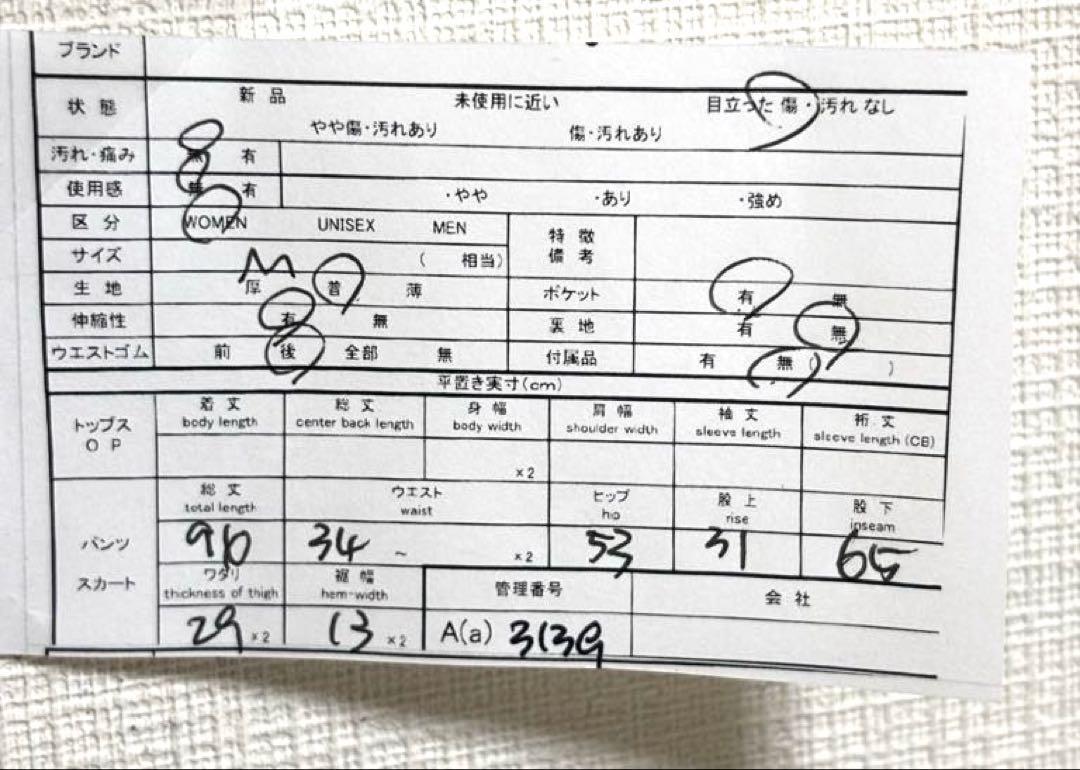 ブランド
状態 新品 未使用に近い 目立った傷・汚れなし
やや傷・汚れあり 傷・汚れあり
汚れ・痛み 無 有
使用感 無 有 ・やや ・あり ・強め
区分 WOMEN UNISEX MEN 特徴備考
サイズ M ( 相当)
生地 厚 普 薄 ポケット 有 無
伸縮性 有 無 裏地 有 無
ウエストゴム 前 後 全部 無 付属品 有 無 ( )
平置き実寸(cm)
トップス OP 着丈 総丈 身幅 肩幅 袖丈 裄丈
body length center back length body width shoulder width sleeve length sleeve length (CB)
×2
総丈 ウエスト ヒップ 股上 股下
total length waist hip rise inseam
パンツ 96 34 ~ ×2 53 31 65
スカート ワタリ 裾幅 管理番号 会社
thickness of thigh hem-width
29 ×2 13 ×2 A(a) 3139